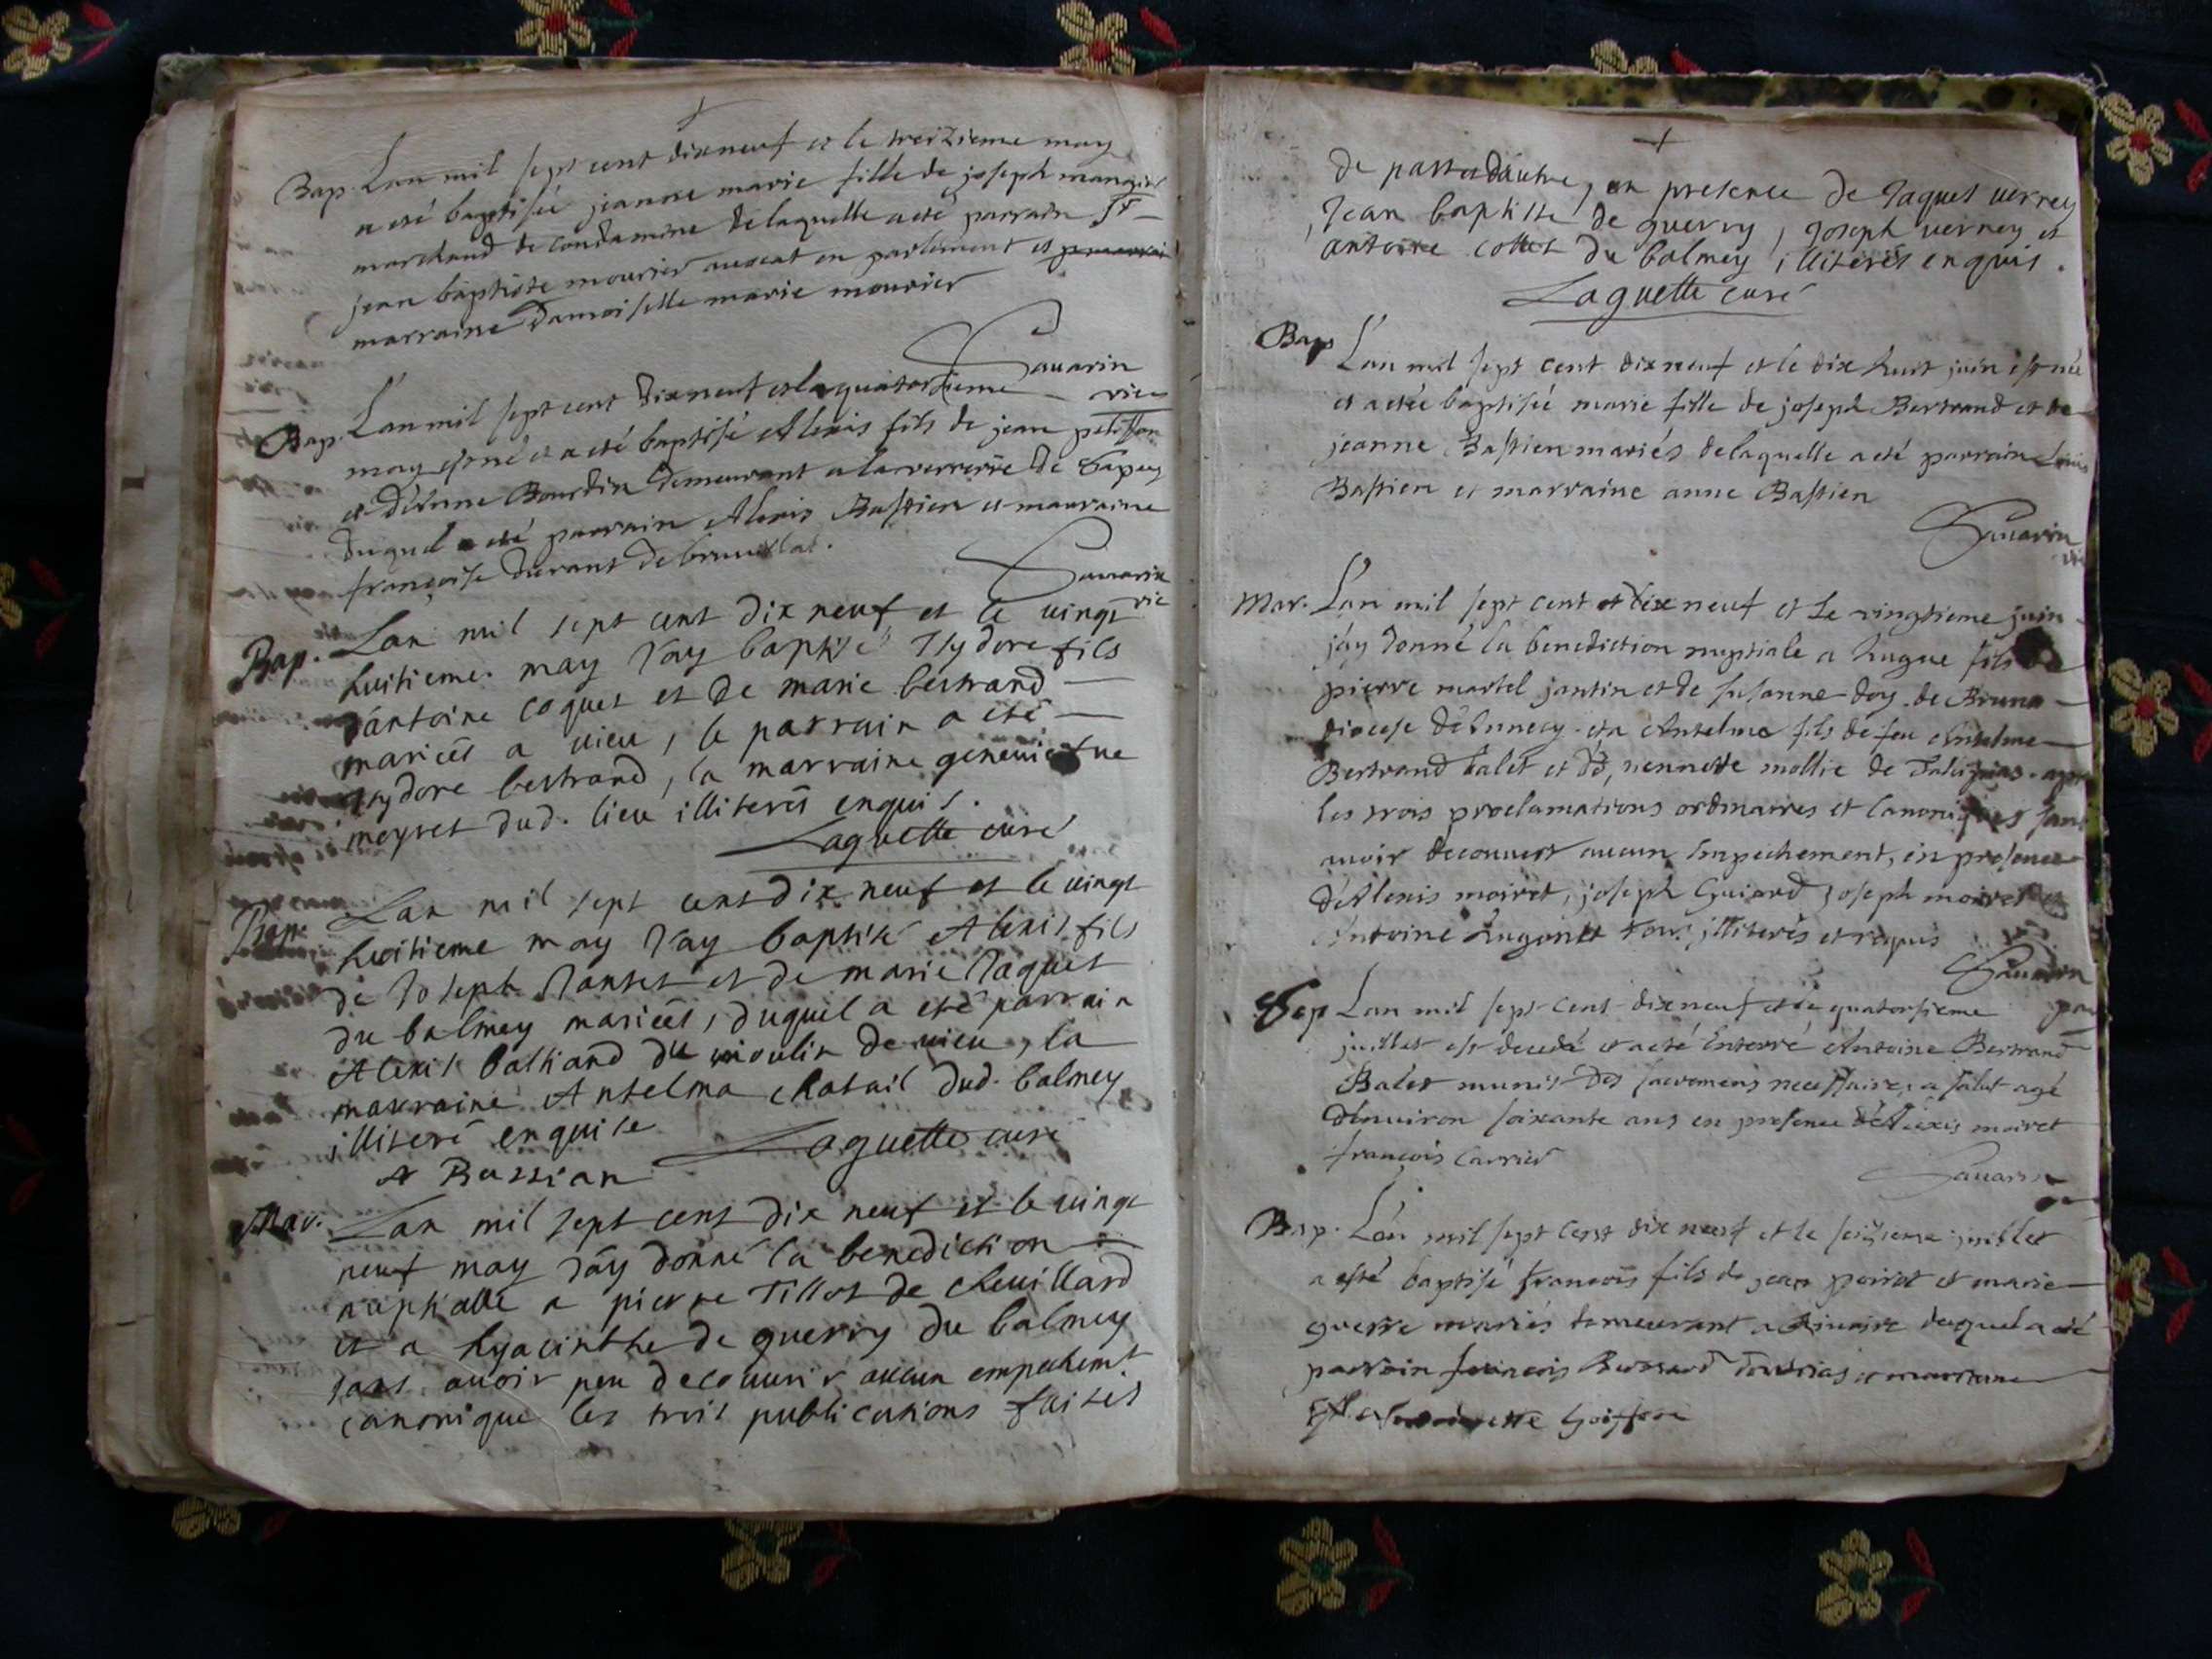 Bap. Lan mil sept cent dixneuf et le treizieme may
a eté baptisée jeanne marie fille de joseph mangin
marchand de condamine delaquelle a eté parrain Sr
jean baptiste mourier auocat en parlement et
marraine Damoiselle marie mourier
Sauarin
vic
Bap. Lan mil sept cent dixneuf et le quatorzieme
may est né et a eté baptisé Alexis fils de jean petisson
et d'Anne Bourdin demeurant a la verrerie de
duquel a eté parrain Alexis Bastien et marraine
françoise durant de
Sauarin
vic
Bap. Lan mil sept cent dix neuf et le uingt
huitieme may J'ay baptisé Isydore fils
d'antoine coquet et de marie bertrand
mariées a uieu, le parrain a eté
isydore bertrand, la marraine geneuiefue
meyret dud. lieu illiterés enquis.
Laguette curé
Bap. Lan mil sept cent dix neuf et le uingt
huitieme may J'ay baptisé Alexis fils
de Joseph Jantet et de marie Jaquet
du balmey mariées, duquel a eté parrain
Alexis balliand du moulin de uieu, la
marraine Antelma chatail dud. balmey
illiteré enquise
Laguette curé
A Bussian
Mar. Lan mil sept cent dix neuf et le uingt
neuf may J'ay donné la benediction
nuptialle a pierre Tillot de cheuillard
et a hyacinthe de guerry du balmey
sans auoir peu decouurir aucun empechemt
canonique les trois publications faites
de part et d'autre, en presence de Jaques uerney
Jean baptiste de guerry, Joseph uerney et
antoine collet du balmey illiterés enquis.
Laguette curé
Bap Lan mil sept cent dixneuf et le dix huit juin est née
et a etée baptisée marie fille de joseph Bertrand et de
jeanne Bastien mariés delaquelle a eté parrain
Bastien et marraine anne Bastien
Sauarin
vic
Mar. Lan mil sept cent et dixneuf et le vingtieme juin
j'ay donné la benediction nuptiale a hugue fils de
pierre martel jantin et de susanne doy de
diocese d'Annecy et a Antelma fille de feu Antelme
Bertrand balet et de nennette mollie de après
les trois proclamations ordinaires et canoniques sans
auoir decouuert aucun empechement, en presence
d'Alexis moiret, joseph Guiard joseph moiret et
Antoine tous illiterés et requis
Sauarin
Sep Lan mil sept cent dixneuf et le quatorzieme
juillet est decedé et a eté enterré Antoine Bertrand
Balet munis des sacremens necessaires a salut agé
d'enuiron soixante ans en presence d'Alexis moiret
françois Carrier
Sauarin
Bap. Lan mil sept cent dix neuf et le seizieme juillet
a esté baptisé françois fils de jean poirot et marie
guerre mariés demeurant a duquel a eté
parrain françois et marraine